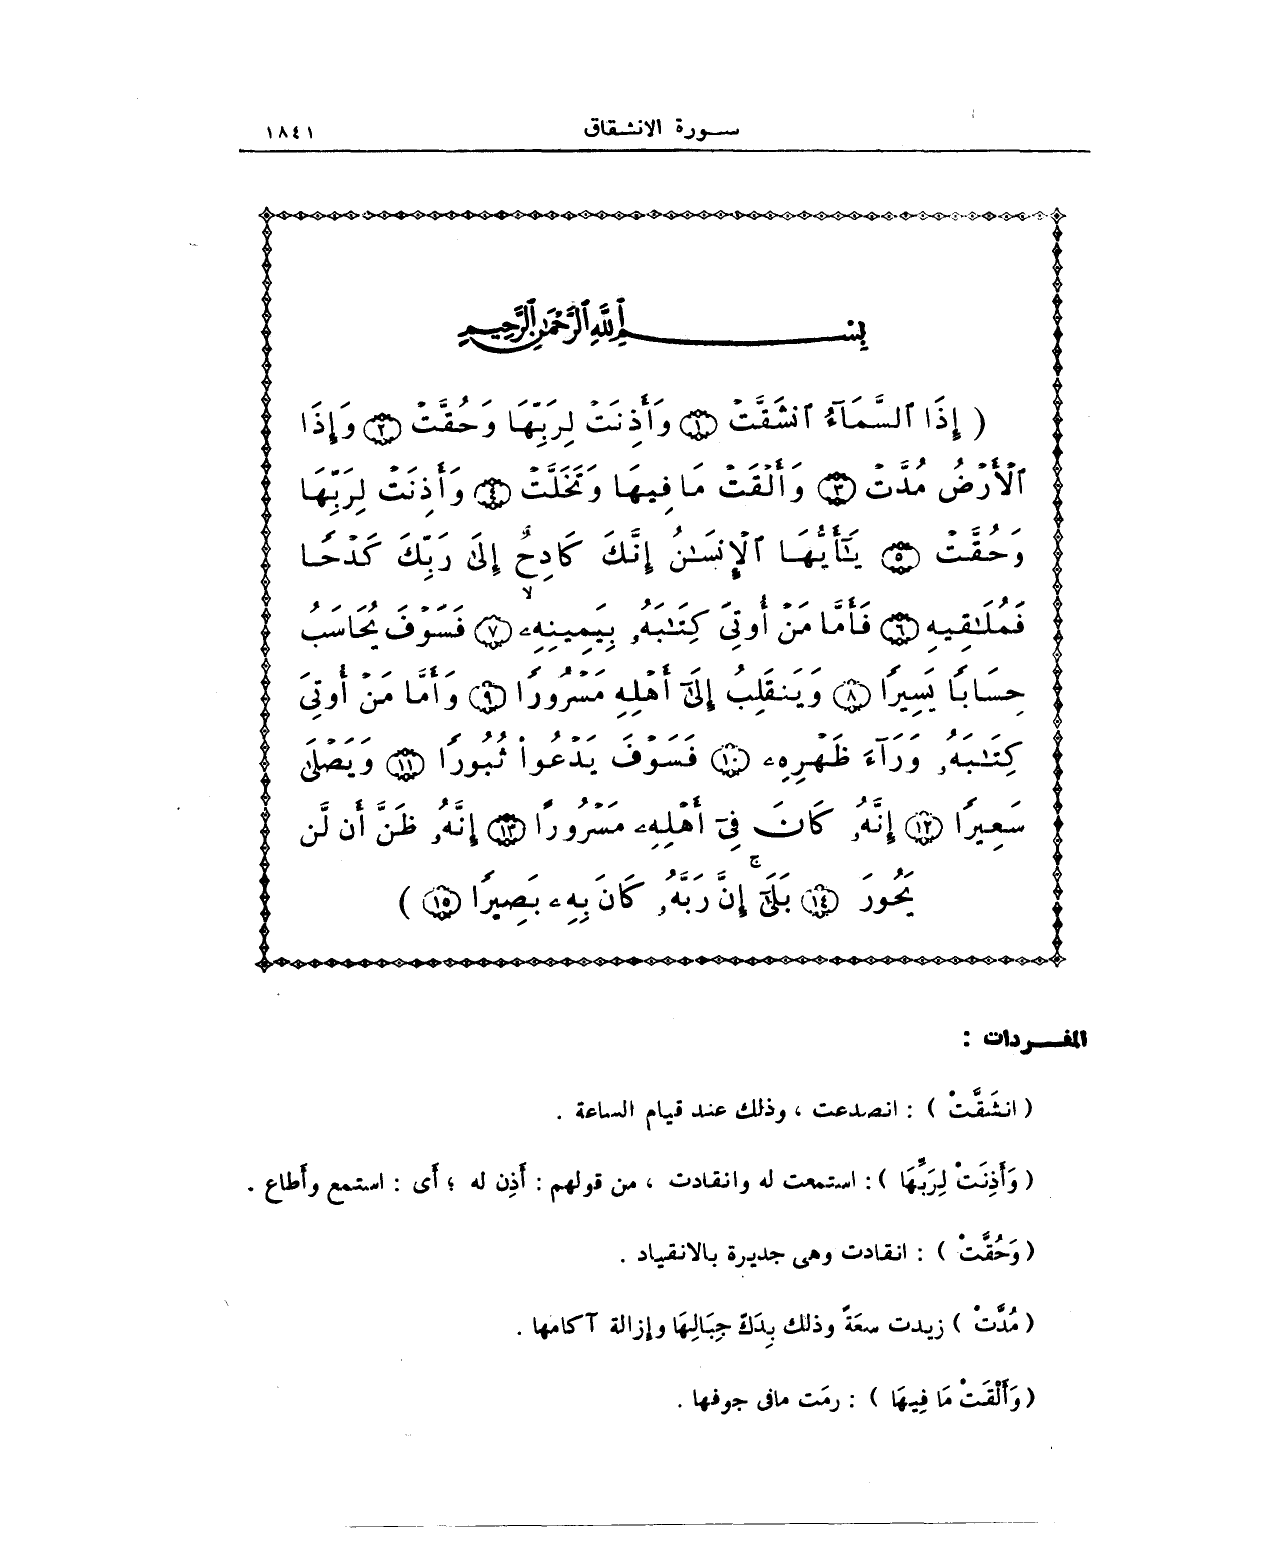 سورة الانشقاق ١٨٤١
بِسْمِ ٱللَّهِ ٱلرَّحْمَٰنِ ٱلرَّحِيمِ
( إِذَا ٱلسَّمَآءُ ٱنشَقَّتْ ١ وَأَذِنَتْ لِرَبِّهَا وَحُقَّتْ ٢ وَإِذَا
ٱلْأَرْضُ مُدَّتْ ٣ وَأَلْقَتْ مَا فِيهَا وَتَخَلَّتْ ٤ وَأَذِنَتْ لِرَبِّهَا
وَحُقَّتْ ٥ يَٰٓأَيُّهَا ٱلْإِنسَٰنُ إِنَّكَ كَادِحٌ إِلَىٰ رَبِّكَ كَدْحًا
فَمُلَٰقِيهِ ٦ فَأَمَّا مَنْ أُوتِىَ كِتَٰبَهُۥ بِيَمِينِهِۦ ۙ ٧ فَسَوْفَ يُحَاسَبُ
حِسَابًا يَسِيرًا ٨ وَيَنقَلِبُ إِلَىٰٓ أَهْلِهِ مَسْرُورًا ٩ وَأَمَّا مَنْ أُوتِىَ
كِتَٰبَهُۥ وَرَآءَ ظَهْرِهِۦ ١٠ فَسَوْفَ يَدْعُوا۟ ثُبُورًا ١١ وَيَصْلَىٰ
سَعِيرًا ١٢ إِنَّهُۥ كَانَ فِىٓ أَهْلِهِۦ مَسْرُورًا ١٣ إِنَّهُۥ ظَنَّ أَن لَّن
يَحُورَ ١٤ بَلَىٰٓ ۚ إِنَّ رَبَّهُۥ كَانَ بِهِۦ بَصِيرًا ١٥ )
المفردات :
( انشَقَّتْ ) : انصدعت ، وذلك عند قيام الساعة .
( وَأَذِنَتْ لِرَبِّهَا ) : استمعت له وانقادت ، من قولهم : أَذِن له ؛ أَى : استمع وأَطاع .
( وَحُقَّتْ ) : انقادت وهى جديرة بالانقياد .
( مُدَّتْ ) زيدت سعَةً وذلك بِدَكِّ جِبَالِهَا وإزالة آكامها .
( وَأَلْقَتْ مَا فِيهَا ) : رمَت مافى جوفها .